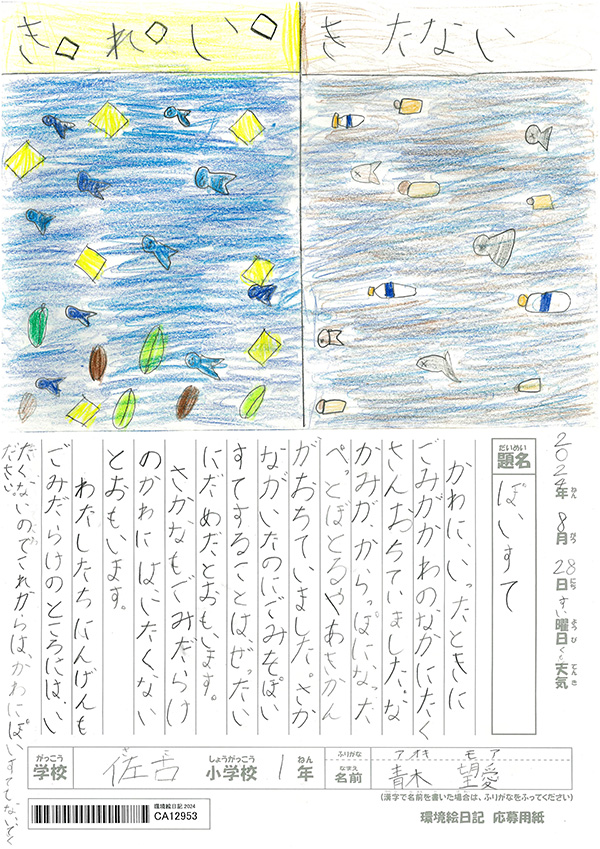 きれい
きたない
2024年 8月 28日 すい曜日 天気
ねん がつ にち ようび てんき
だいめい
題名
ぽいすて
かわに、いったときに
ごみがかわのなかにたく
さんおちていました。な
かみが、からっぽになった
ぺっとぼとるやあきかん
がおちていました。さか
ながいたのにごみをぽい
すてすることはぜったい
にだめだとおもいます。
さかなもごみだらけ
のかわにはいたくない
とおもいます。
わたしたちにんげんも
ごみだらけのところには、い
たくないのでこれからは、かわにぽいすてしないでく
ださい。
がっこう さこ しょうがっこう ねん ふりがな アオキ モア
学校 佐古 小学校 1年 なまえ 名前 青木 望愛
(漢字で名前を書いた場合は、ふりがなをふってください)
環境絵日記 2024
CA12953
環境絵日記 応募用紙